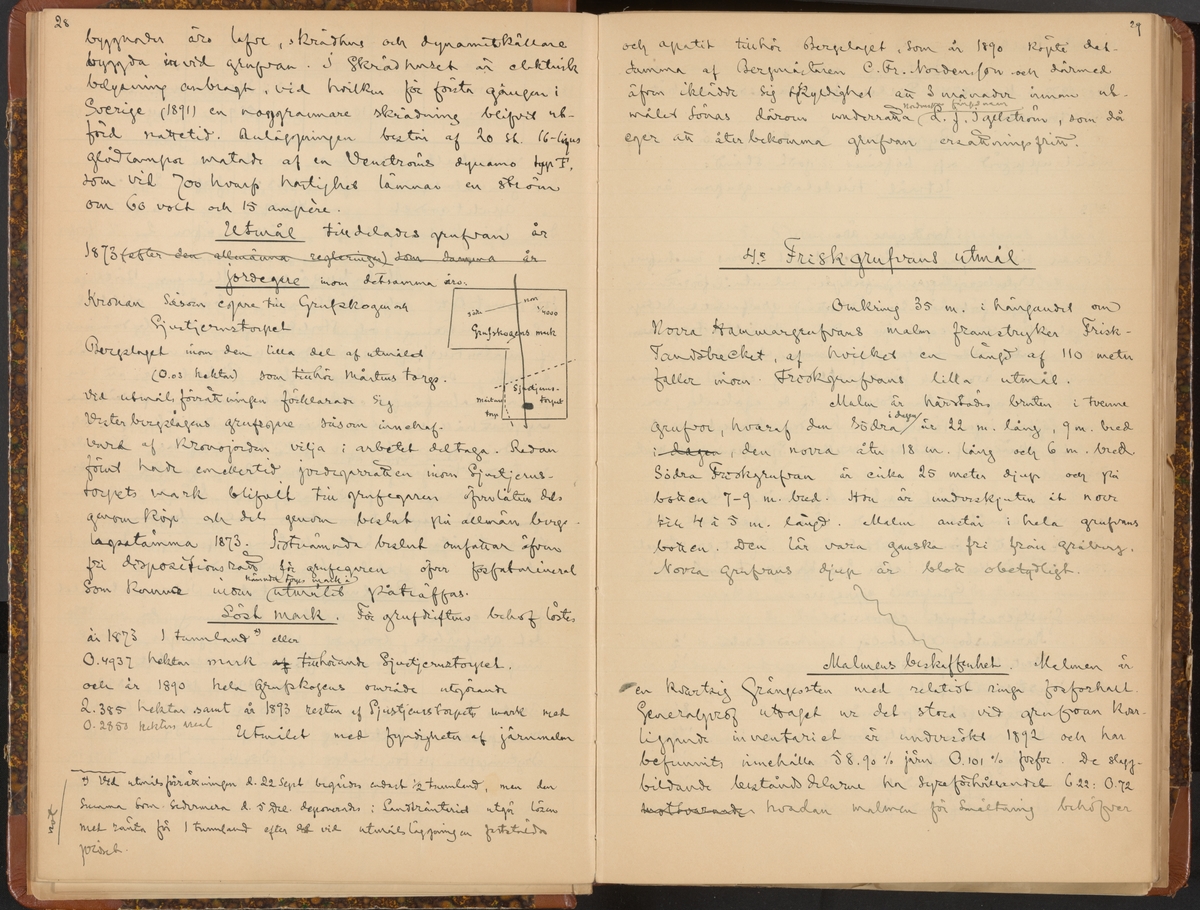 28
byggnader äro lafve, skrädhus och dynamitkällare
byggda invid grufvan. I Skrädhuset är elektrisk
belysning anbragt, vid hvilken för första gången i
Sverige (1891) en noggrannare skrädning blifvit ut-
förd nattetid. Anläggningen består af 20 st. 16-ligus
glödlampor matade af en Venströms dynamo typ F,
som vid 700 hvarfs hastighet lämnar en ström
om 60 volt och 15 ampère.
Utmål tilldelades grufvan år
1873 (efter den allmänna regleringen) som damma år
jordegare inom detsamma äro.
Kronan såsom egare till Grufskogen och
Sjustjernstorpet
Bergslaget inom den lilla del af utmålet
(0.03 hektar) som tillhör Mårtens torp.
Vid utmålsförrättningen förklarade sig
Vesterbergslagens grufegare såsom innehaf-
vare af Kronojorden vilja i arbetet deltaga. Redan
förut hade emellertid jordegarrätten inom Sjustjerns-
torpets mark blifvit till grufegaren öfverlåten dels
genom köp och dels genom beslut på allmän bergs-
lagsstämma 1873. Sistnämnda beslut omfattar äfven
fri dispositionsrätt för grufegaren öfver fosfatmineral
som kunna inom utmålet påträffas.
Löst mark. För grufdriftens behof löstes
år 1873 1 tunnland *) eller
0.4937 hektar mark af tillhörande Sjustjernstorpet.
och år 1890 hela Grufskogens område utgörande
2.385 hektar samt år 1893 resten af Sjustjernstorpets mark med
0.2853 hektar
Utmålet med fyndigheter af järnmalm
*) Vid utmålsförrättningen d. 22 Sept begärdes endast 1/2 tunnland, men den
summa som sedermera d. 5 Dec. deponerades i Landtränteriet utgör lösen
med ränta för 1 tunnland efter det vid utmålsläggningen fastställda
priset.
not
1/4000
Grufskogens mark
Sjustjerns-
torpet
Mårtens
torp
29
och apatit tillhör Bergslaget, som år 1890 köpte det-
samma af Bergmästaren C. Fr. Nordenson och därmed
äfven iklädde sig skyldighet att 3 månader innan ut-
målet sönas därom underrätta L. J. Igelström, som då
eger att återbekomma grufvan ersättningsfritt.
4. Friskgrufvans utmål
Omkring 35 m. i hängandet om
Norra Hammargrufvans malm framstryker Frisk-
Tandsbrecket, af hvilket en längd af 110 meter
faller inom Friskgrufvans lilla utmål.
Malm är härstädes bruten i tvenne
grufvor, hvaraf den Södra i dagen är 22 m. lång, 9 m. bred
i dagen, den norra åter 18 m. lång och 6 m. bred.
Södra Friskgrufvan är cirka 25 meter djup och på
botten 7-9 m. bred. Hon är underskjuten åt norr
till 4 à 5 m. längd. Malm anstår i hela grufvans
botten. Den lär vara ganska fri från gråberg.
Norra grufvans djup är blott obetydligt.
Malmens beskaffenhet. Malmen är
en kvartsig Grängesten med relativt ringa fosforhalt.
Generalprof uttaget ur det stora vid grufvan kvar-
liggande inventariet är undersökt 1892 och har
befunnits innehålla 58.90 % järn 0.101 % fosfor. De slagg-
bildande beståndsdelarne ha syreförhållandet 6.22: 0.72
motsvarande hvadan malmen för smältning behöfver